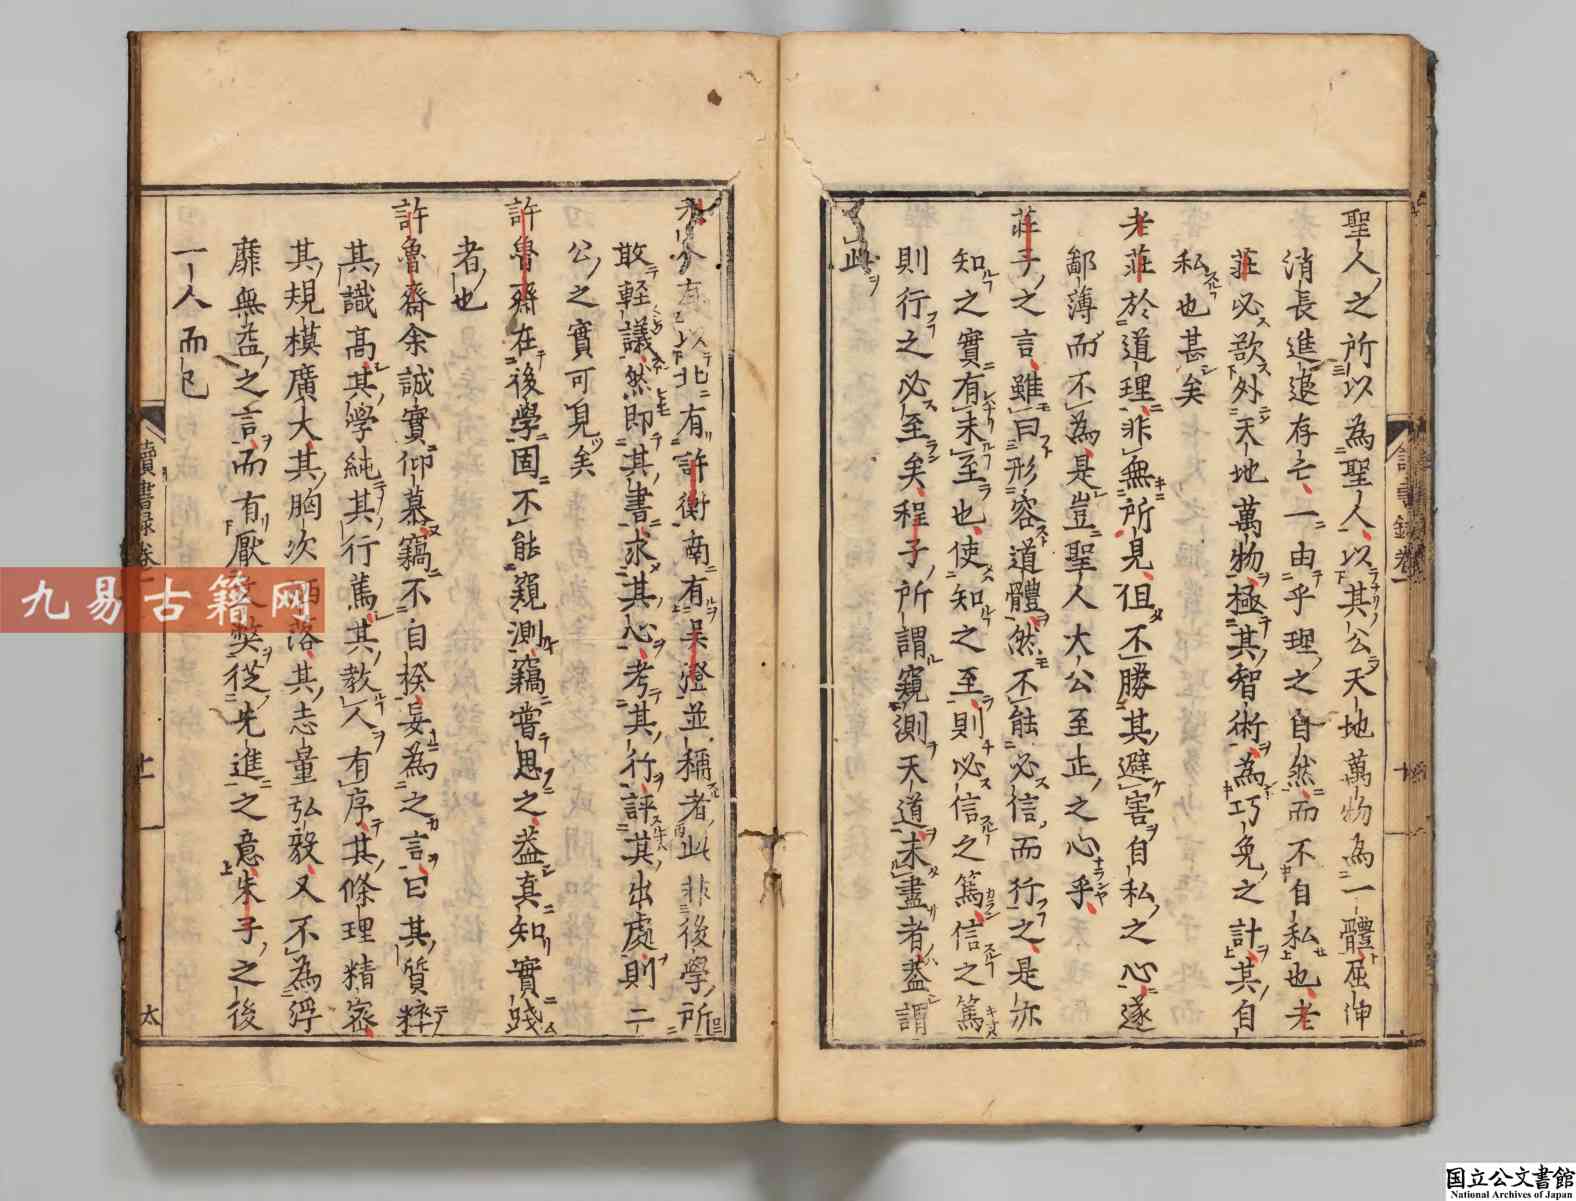 聖人之所以為聖人以其公天地萬物為一體屈伸
消長進退存亡一由乎理之自然而不自私也老
莊必欲外天地萬物極其智術為巧免之計其自
私也甚矣
老莊於道理非無所見但不勝其避害自私之心遂
鄙薄而不為是豈聖人大公至正之心乎
莊子之言雖曰形容道體然不能必信而行之是亦
知之實有未至也使知之至則必信之篤信之篤
則行之必至矣程子所謂窺測天道未盡者蓋謂
此
讀書錄卷一
十
有以北有許衡南有吳澄並稱者此非後學所
敢輕議然即其書求其心考其行評其出處則二
公之實可見矣
許魯齋在後學固不能窺測竊嘗思之益真知實踐
者也
許魯齋余誠實仰慕竊不自揆妄為之言曰其質粹
其識高其學純其行篤其教人有序其條理精密
其規模廣大其胸次洒落其志量弘毅又不為浮
靡無益之言而有厭文弊從先進之意朱子之後
一人而已
讀書錄卷一
十一
太
九易古籍网
国立公文書館
National Archives of Japan